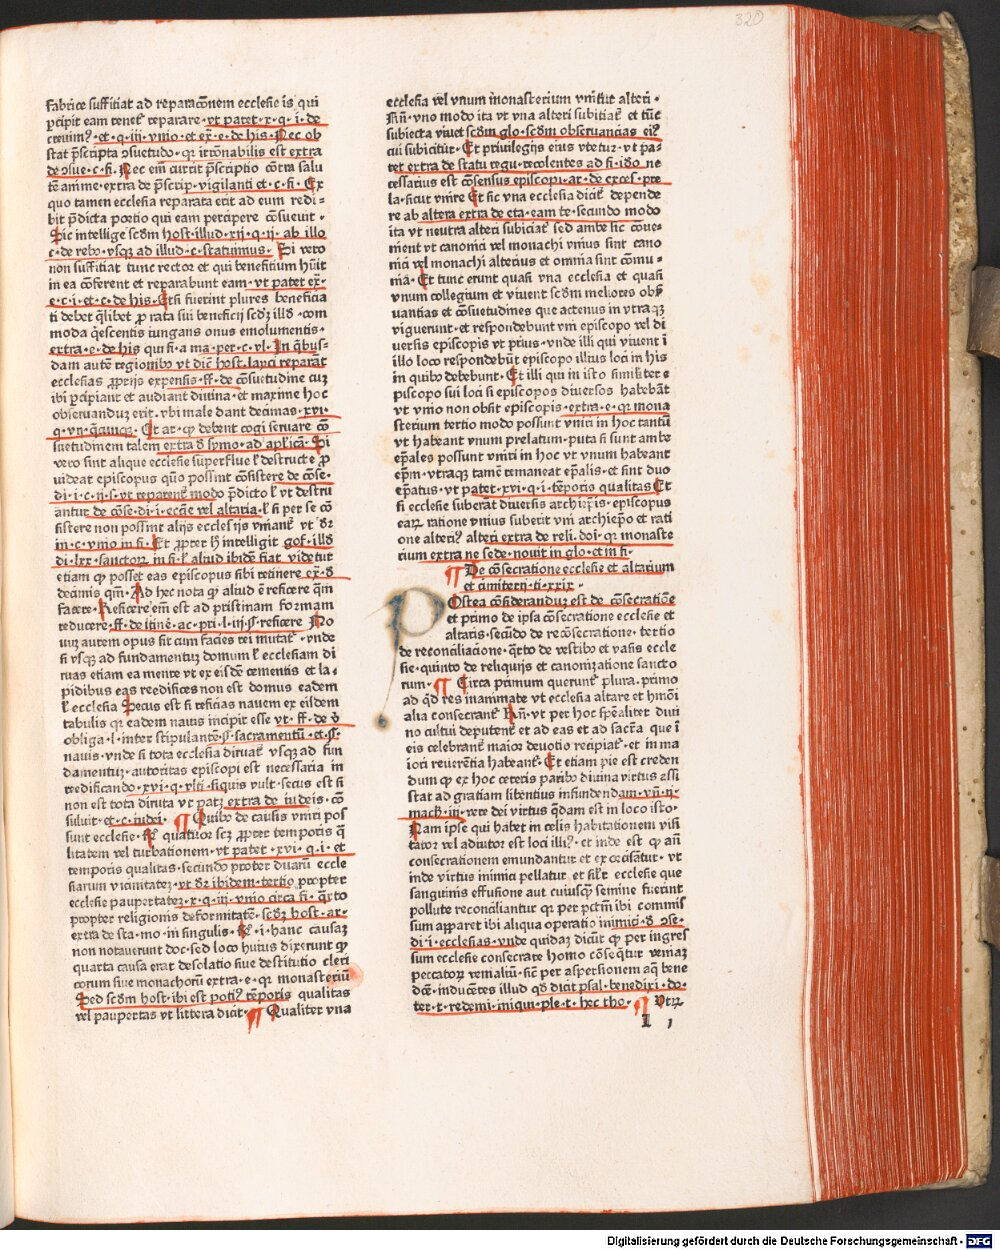 320
fabrice suffitiat ad reparacōnem ecclesie is qui
ꝑcipit eam tenet̄ reparare · vt patet · x · q · i · de
cretum? · et · q · iii · vnio · et ex̄ · e · de his · Nec ob
stat p̄scripta ↄsuetudo · qr irrōnabilis est extra
de ↄsue · c · fi · Nec em̄ currit p̄scriptio cōtra salu
tē anime · extra de p̄scrip · vigilanti et · c · fi · Ex
quo tamen ecclesia reparata erit ad eum redi=
bit p̄dicta porcio qui eam percipere cōsueuit ·
Sic intellige scd̄m host · illud · xii · q · ii · ab illo
c · de rebꝰ · vsqꝫ ad illud · c · statuimus · Si vero
non suffitiat tunc rector et qui benefitium hūit
in ea cōferent et reparabunt eam · vt patet ex̄ ·
e · c · i · et · c · de his · Etsi fuerint plures beneficia
ti debet q̄libet ꝓ rata sui beneficij scd̄z illd̄ · com
moda q̄escentis iungans onus emolumentis ·
extra · e · de his qui fi · a ma · per · c · vl · In q̄bus-
dam autē regionibꝰ vt dic̄ host · layci reparāt
ecclesias ꝓprijs expensis · ff · de cōsuetudine cuꝫ
ibi ꝑcipiant et audiant diuina · et maxime hoc
obseruanduꝫ erit · vbi male dant decimas · xvi ·
q · vn · q̄cunqꝫ · Et ar · qꝫ debent cogi seruare cō
suetudinem talem extra d̄ symo · ad apl̓icā · Si
vero sint alique ecclesie superflue l̓ destructe ꝓ
uideat episcopus quō possint cōsistere de cōse ·
di · i · c · ii · s · vt reparent̄ modo p̄dicto l̓ vt destru
antur de cōse · di · i · eccāe vel altaria · l̓ si per se cō
sistere non possint alijs ecclesijs vniant̄ vt dr̄
in · c · vnio in fi · Et ꝓpter h̄ intelligit gof · illd̄
di · lxx · sanctorꝫ in fi · l̓ aliud ibidē fiat videtur
etiam qꝫ posset eas episcopus sibi retinere ex̄ · d̄
decimis qm̄ · Ad hec nota qꝫ aliud ē reficere q̄m
facere · Reficere em̄ est ad pristinam formam
reducere · ff · de itinē · ac · pri · l · iii · § · reficere No
uuꝫ autem opus fit cum facies rei mutat̄ · vnde
si vsqꝫ ad fundamentuꝫ domum l̓ ecclesiam di
ruas etiam ea mente vt ex eisdē cementis et la=
pidibus eas reedifices non est domus eadem
l̓ ecclesia Secus est si reficias nauem ex eisdem
tabulis qr eadem nauis incipit esse vt · ff · de v̄
obliga · l · inter stipulantē · § · sacramentū · et · § ·
nauis · vnde si tota ecclesia diruat̄ vsqꝫ ad fun
damentuꝫ · autoritas episcopi est necessaria in
reedificando · xvi · q · vlti · siquis vult · secus est si
non est tota diruta vt patꝫ extra de iudeis · cō
siluit · et · c · iudei · ¶ Quibꝰ de causis vniri pos
sunt ecclesie · R̄ · quatuor scꝫ ꝓpter temporis q̄
litatem vel turbationem · vt patet · xvi · q · i · et
temporis qualitas · secundo propter duarū eccle
siarum vicinitateꝫ · vt dr̄ ibidem · tertio propter
ecclesie paupertateꝫ · x · q · iii · vnio circa fi · q̄rto
propter religionis deformitatē · scd̄z host · ar ·
extra de sta · mo · in singulis · R̄ · i · hanc causaꝫ
non notauerunt doc · sed loco huius dixerunt qꝫ
quarta causa erat desolatio siue destitutio cleri
corum siue monachorū extra · e · qr monasteriū
Sed scd̄m host · ibi est potiꝰ tēporis qualitas
vel paupertas vt littera dicit · ¶ Qualiter vna
ecclesia vel vnum monasterium vnitur alteri ·
Rn̄ · vno modo ita vt vna alteri subitiat̄ et tūc
subiecta viuet scd̄m glo · scd̄m obseruancias eiꝰ
cui subicitur · Et priuilegijs eius vtetur · vt pa=
tet extra de statu regu · recolentes ad fi · ido ne
cessarius est cōsensus episcopi · ar · de exces · pre
la · sicut vnire Et sic vna ecclesia dicit̄ depende
re ab altera extra de eta · eam te · secundo modo
ita vt neutra alteri subiciat̄ sed ambe sic cōue=
nient vt canonici vel monachi vnius sint cano
nici vel monachi alterius et omnia sint cōmu=
nia · Et tunc erunt quasi vna ecclesia et quasi
vnum collegium et viuent scd̄m meliores obs̄
uantias et cōsuetudines que actenus in vtraqꝫ
viguerunt · et respondebunt vni episcopo vel di
uersis episcopis vt prius · vnde illi qui viuent ī
illo loco respondebūt episcopo illius loci in his
in quibꝰ debebunt · Et illi qui in isto similiter e
piscopo sui loci si episcopos diuersos habebāt
vt vnio non obsit episcopis · extra · e · qr mona
sterium tertio modo possunt vniri in hoc tantū
vt habeant vnum prelatum · puta si sunt ambe
ep̄ales possunt vniri in hoc vt vnum habeant
ep̄m · vtraqꝫ tamē remaneat ep̄alis · et sint duo
ep̄atus · vt patet · xvi · q · i · tēporis qualitas Et
si ecclesie suberāt diuersis archiep̄is · episcopus
earꝫ ratione vnius suberit vni archiep̄o et rati
one alteriꝰ alteri extra de reli · doi · qr monaste
rium extra ne sede · nouit in glo · et in fi ·
¶ De cōsecratione ecclesie et altarium
et cimiterij · ti · xxix ·
POstea cōsiderandum est de cōsecratiōe
et primo de ipsa cōsecratione ecclesie et
altaris · secūdo de recōsecratione · tertio
de reconciliacione · q̄rto de vestibꝰ et vasis eccle
sie · quinto de reliquijs et canonizatione sancto
rum · ¶ Circa primum querunt̄ plura · primo
ad qd̄ res inanimate vt ecclesia altare et hm̄oi
alia consecrant̄ Rn̄ · vt per hoc sp̄ealiter diui
no cultui deputent̄ et ad eas et ad sacra que ī
eis celebrant̄ maior deuotio recipiat̄ · et in ma
iori reuerētia habeant̄ · Et etiam pie est creden
dum qꝫ ex hoc ceteris paribꝰ diuina virtus assi
stat ad gratiam libentius infundendam · vn̄ · ii ·
mach · iii · vere dei virtus q̄dam est in loco isto ·
Nam ipse qui habet in celis habitationem visi
tator vel adiutor est loci illiꝰ · et inde est qꝫ an̄
consecrationem emundantur et exorcisātur · vt
inde virtus inimici pellatur · et sil̓r ecclesie que
sanguinis effusione aut cuiusqꝫ semine fuerint
pollute reconciliantur qr per pctm̄ ibi commis
sum apparet ibi aliqua operatio inimici · d̄ ↄse ·
di · i · ecclesias · vnde quidaꝫ dicūt qꝫ per ingres
sum ecclesie consecrate homo cōseq̄tur veniaꝫ
peccatorꝫ venialiū · sic̄ per aspersionem aq̄ bene
dicē · inducētes illud qd̄ dicit psal · benedixi · do=
ter · t · redemi · iniqui · ple · t · hec tho · ¶ Vtrꝫ
l 1
Digitalisierung gefördert durch die Deutsche Forschungsgemeinschaft - DFG